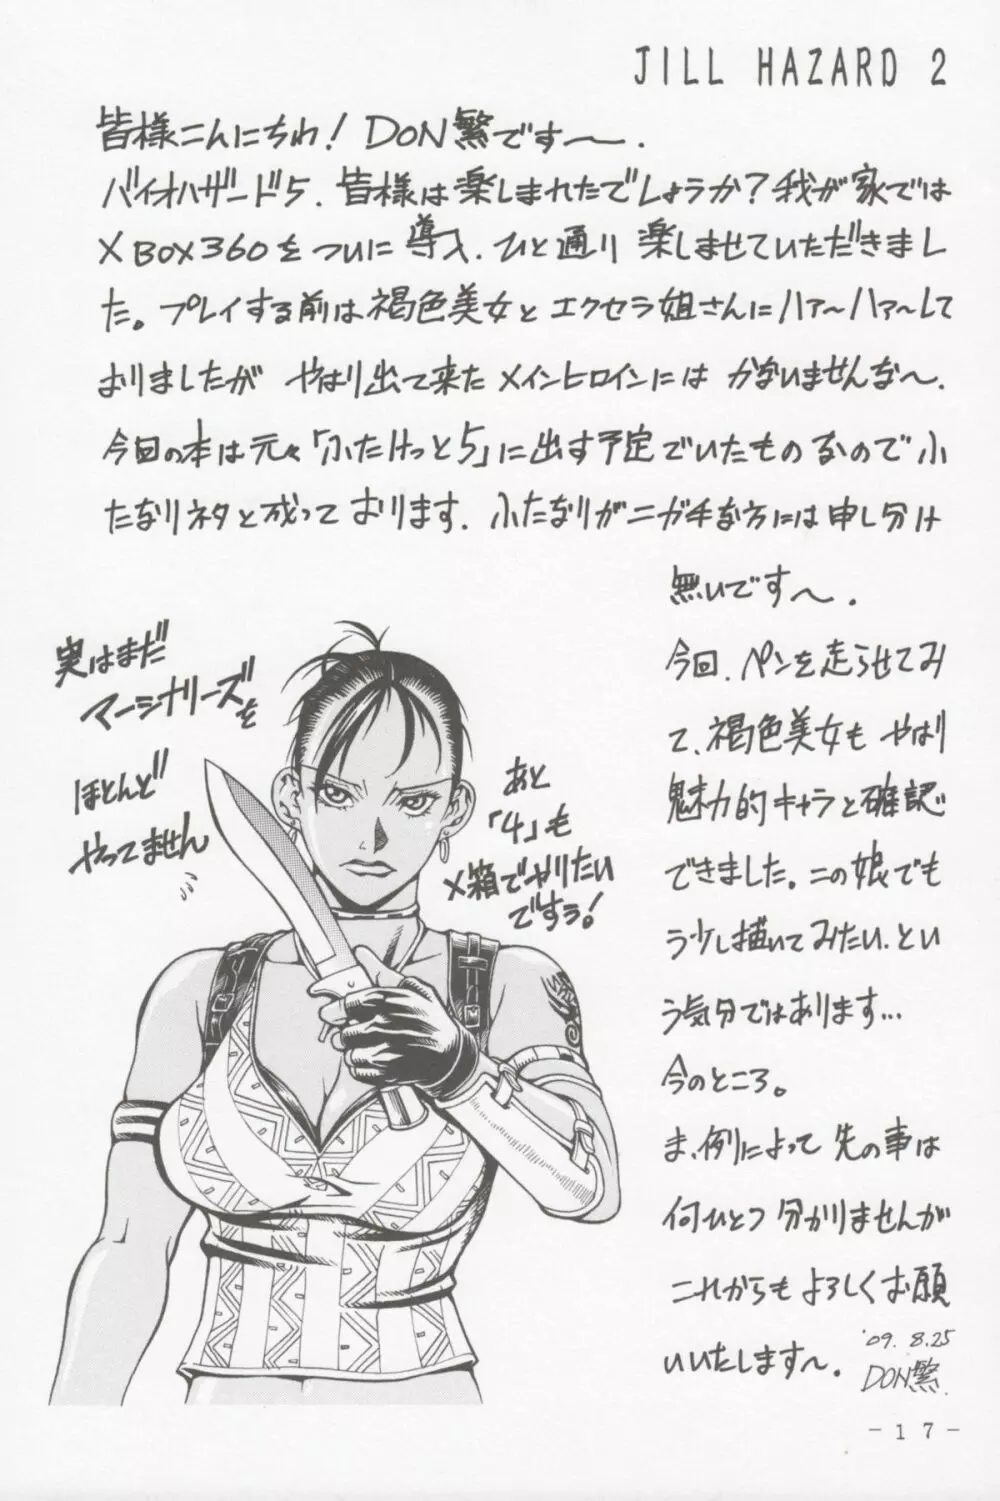 JILL HAZARD 2
皆様こんにちわ！DON繁です〜.
バイオハザード5. 皆様は楽しまれたでしょうか？我が家では
XBOX360をついに導入. ひと通り楽しませていただきまし
た。プレイする前は褐色美女とエクセラ姐さんにハァ〜ハァ〜して
おりましたが やはり出て来たメインヒロインには かないませんな〜.
今回の本は元々「ふたけっと5」に出す予定でいたものなので ふ
たなりネタと成っております. ふたなりがニガ手な方には申し分け
無いです〜.
今回. ペンを走らせてみ
て、褐色美女も やはり
魅力的キャラと確認
できました。この娘でも
う少し描いてみたい. とい
う気分ではあります…
今のところ。
ま、例によって 先の事は
何ひとつ 分かりませんが
これからも よろしくお願
いいたします〜.
'09. 8.25
DON繁.
実はまだ
マーシナリーズを
ほとんど
やってません
あと
「4」も
X箱でやりたい
ですぅ！
-17-